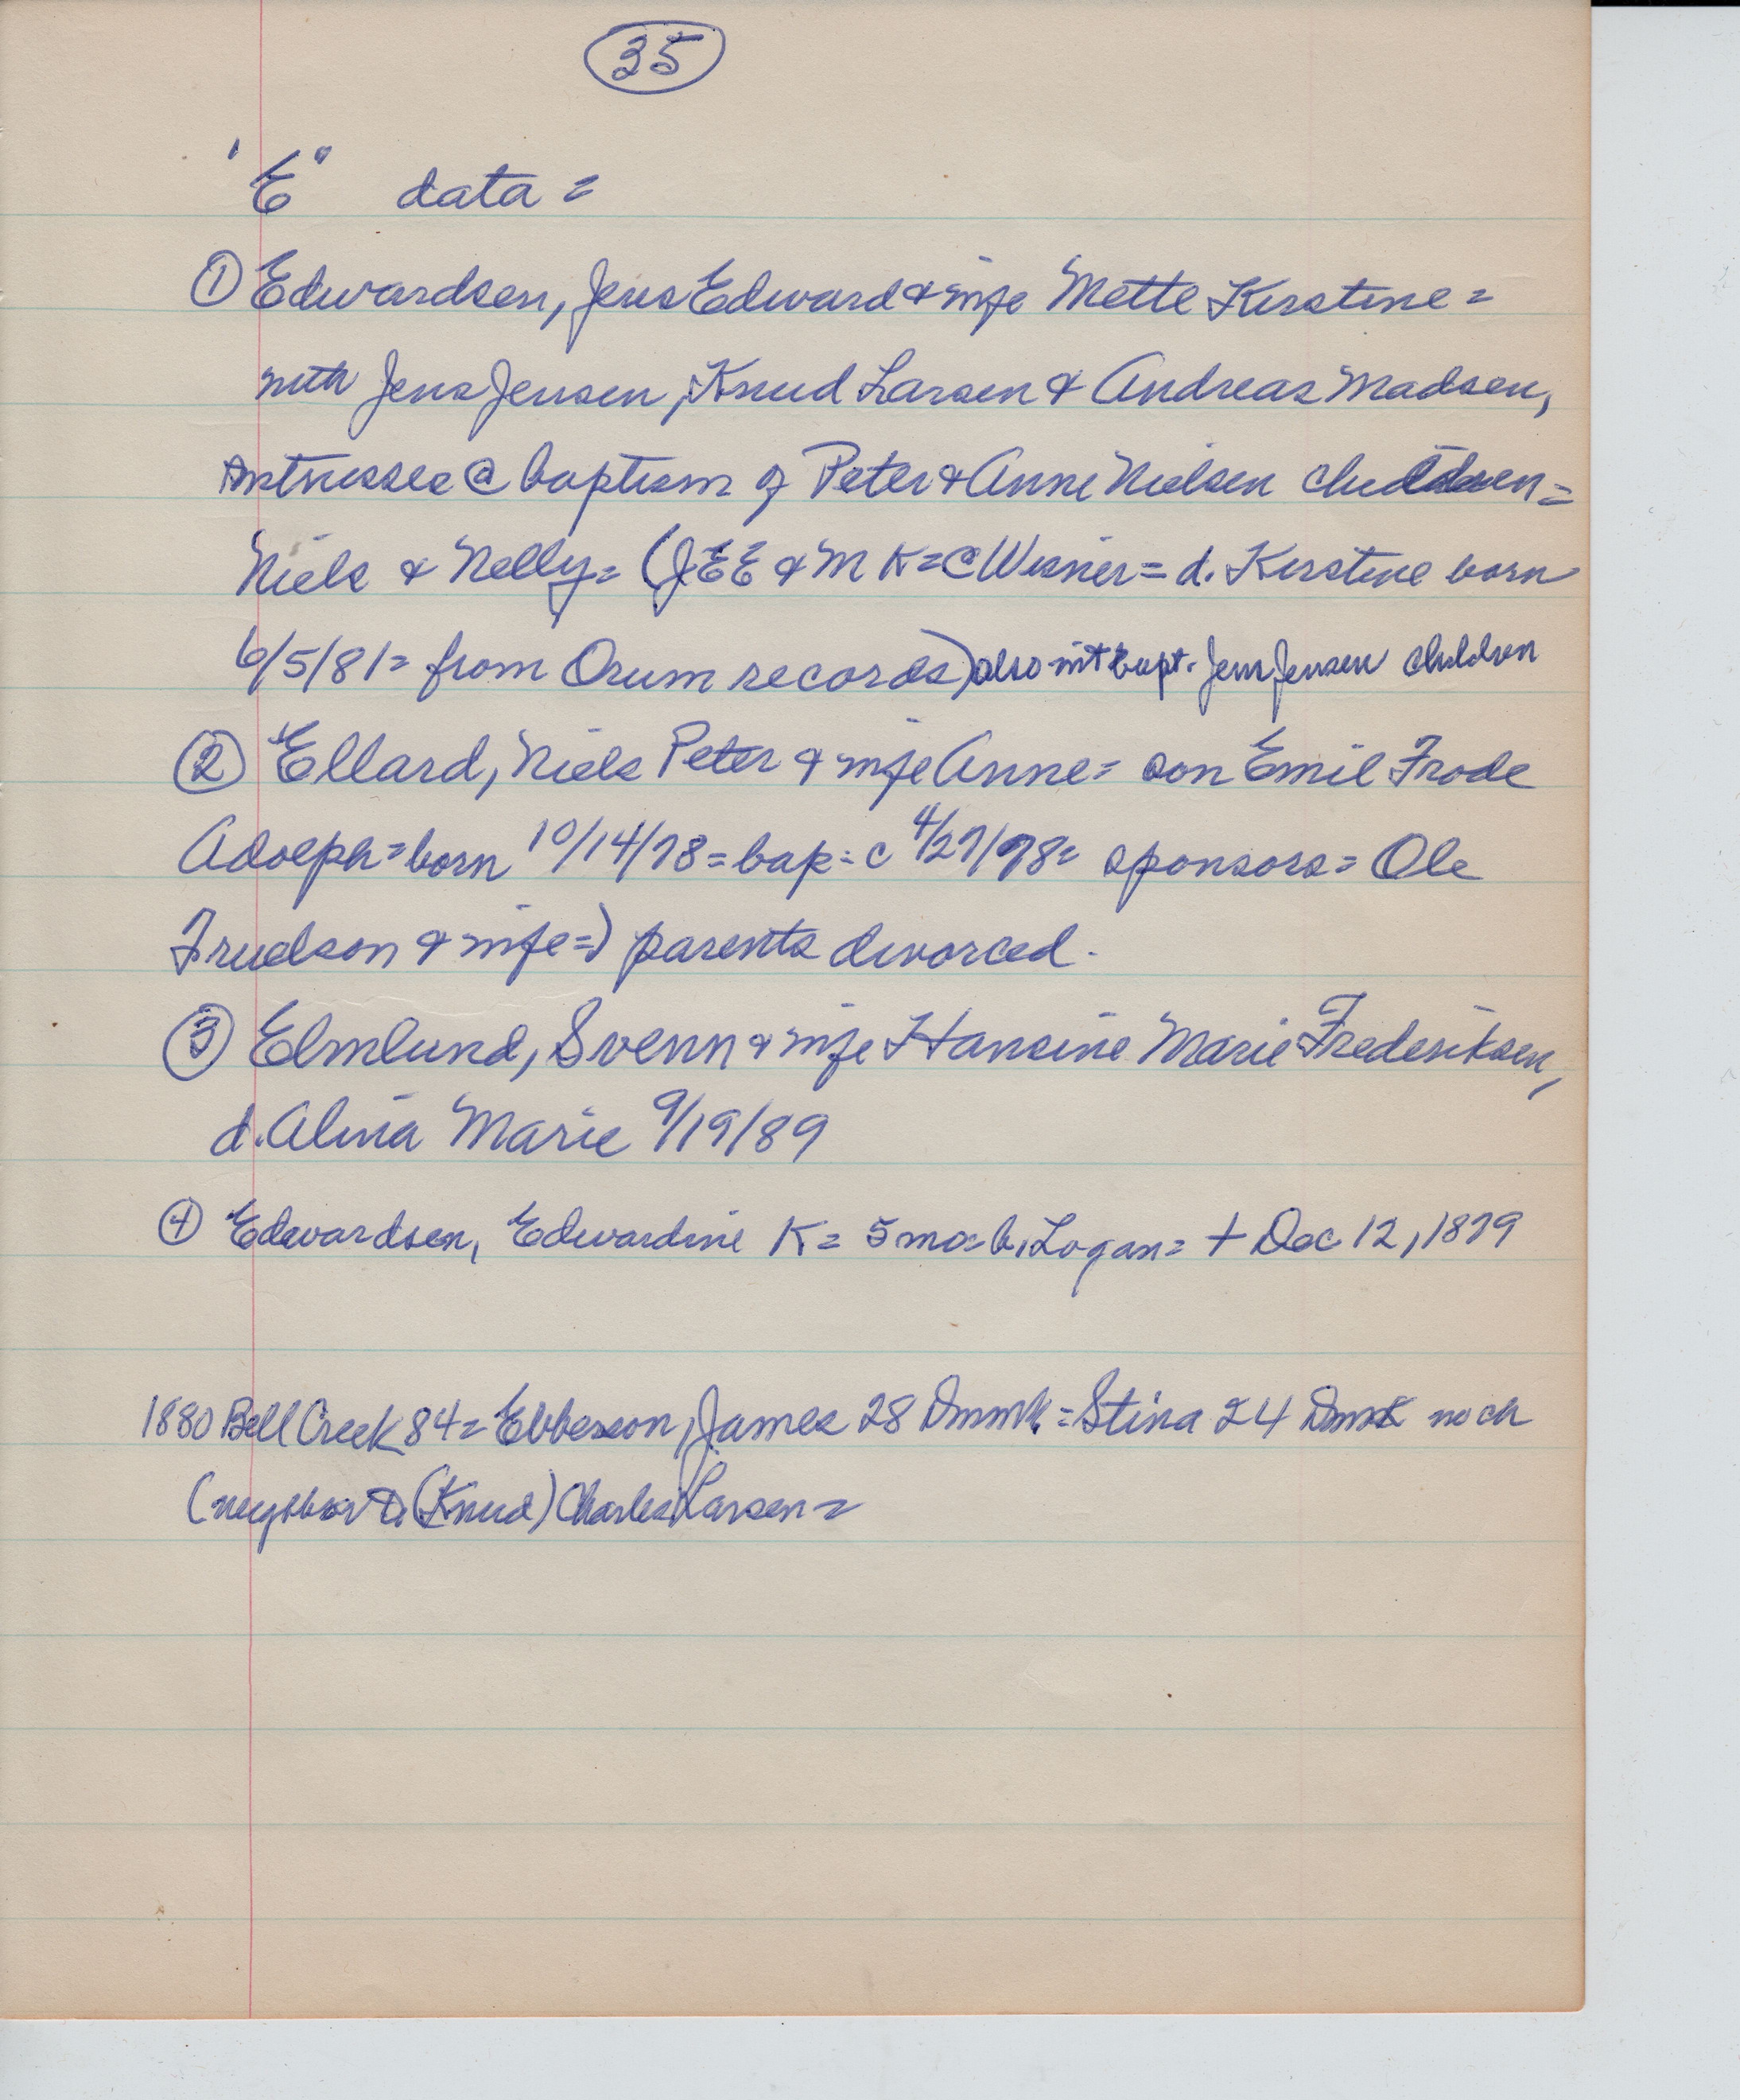 35
"E" data =
① Edwardsen, Jens Edward & wife Mette Kirstine =
with Jens Jensen, Knud Larsen & Andreas Madsen,
witnesses @ baptism of Peter & Anne Nielsen children =
Niels & Nelly = (JEE & M K = @ Wisner = d. Kirstine born
6/5/81 = from Orum records) also wit bapt. Jens Jensen children
② Ellard, Niels Peter & wife Anne = son Emil Frode
Adolph = born 10/14/78 = bap = c 4/27/98 = sponsors = Ole
Frudson & wife =) parents divorced.
③ Elmlund, Svenn & wife Hansine Marie Frederiksen,
d. Alina Marie 9/19/89
④ Edwardsen, Edwardine K = 5 mo = b. Logan = + Dec 12, 1879
1880 Bell Creek 84 = Ebbeson, James 28 Dnmk = Stina 24 Dnmk no ch
(neighbor to (Knud) Charles Larsen =